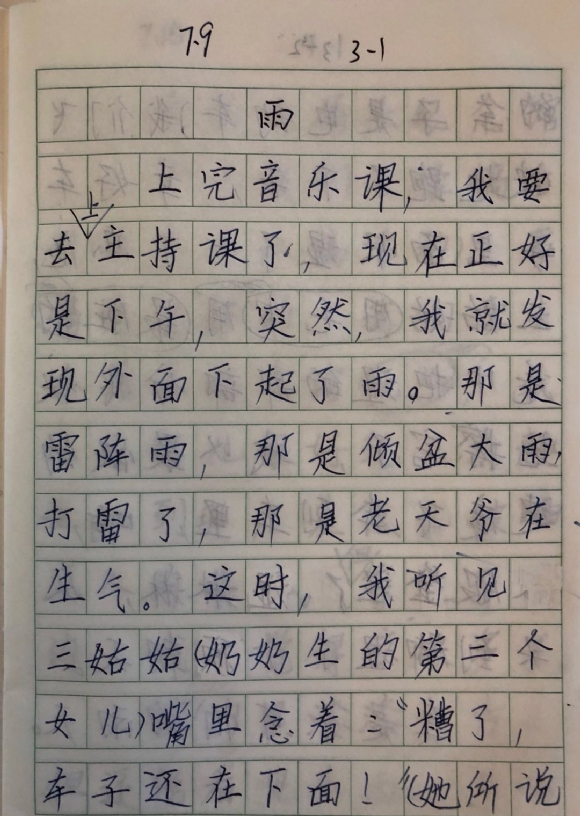 7.9 3-1
雨
上完音乐课，我要
去上主持课了，现在正好
是下午，突然，我就发
现外面下起了雨。那是
雷阵雨，那是倾盆大雨，
打雷了，那是老天爷在
生气。这时，我听见
三姑姑(奶奶生的第三个
女儿)嘴里念着：“糟了，
车子还在下面！”(她所说